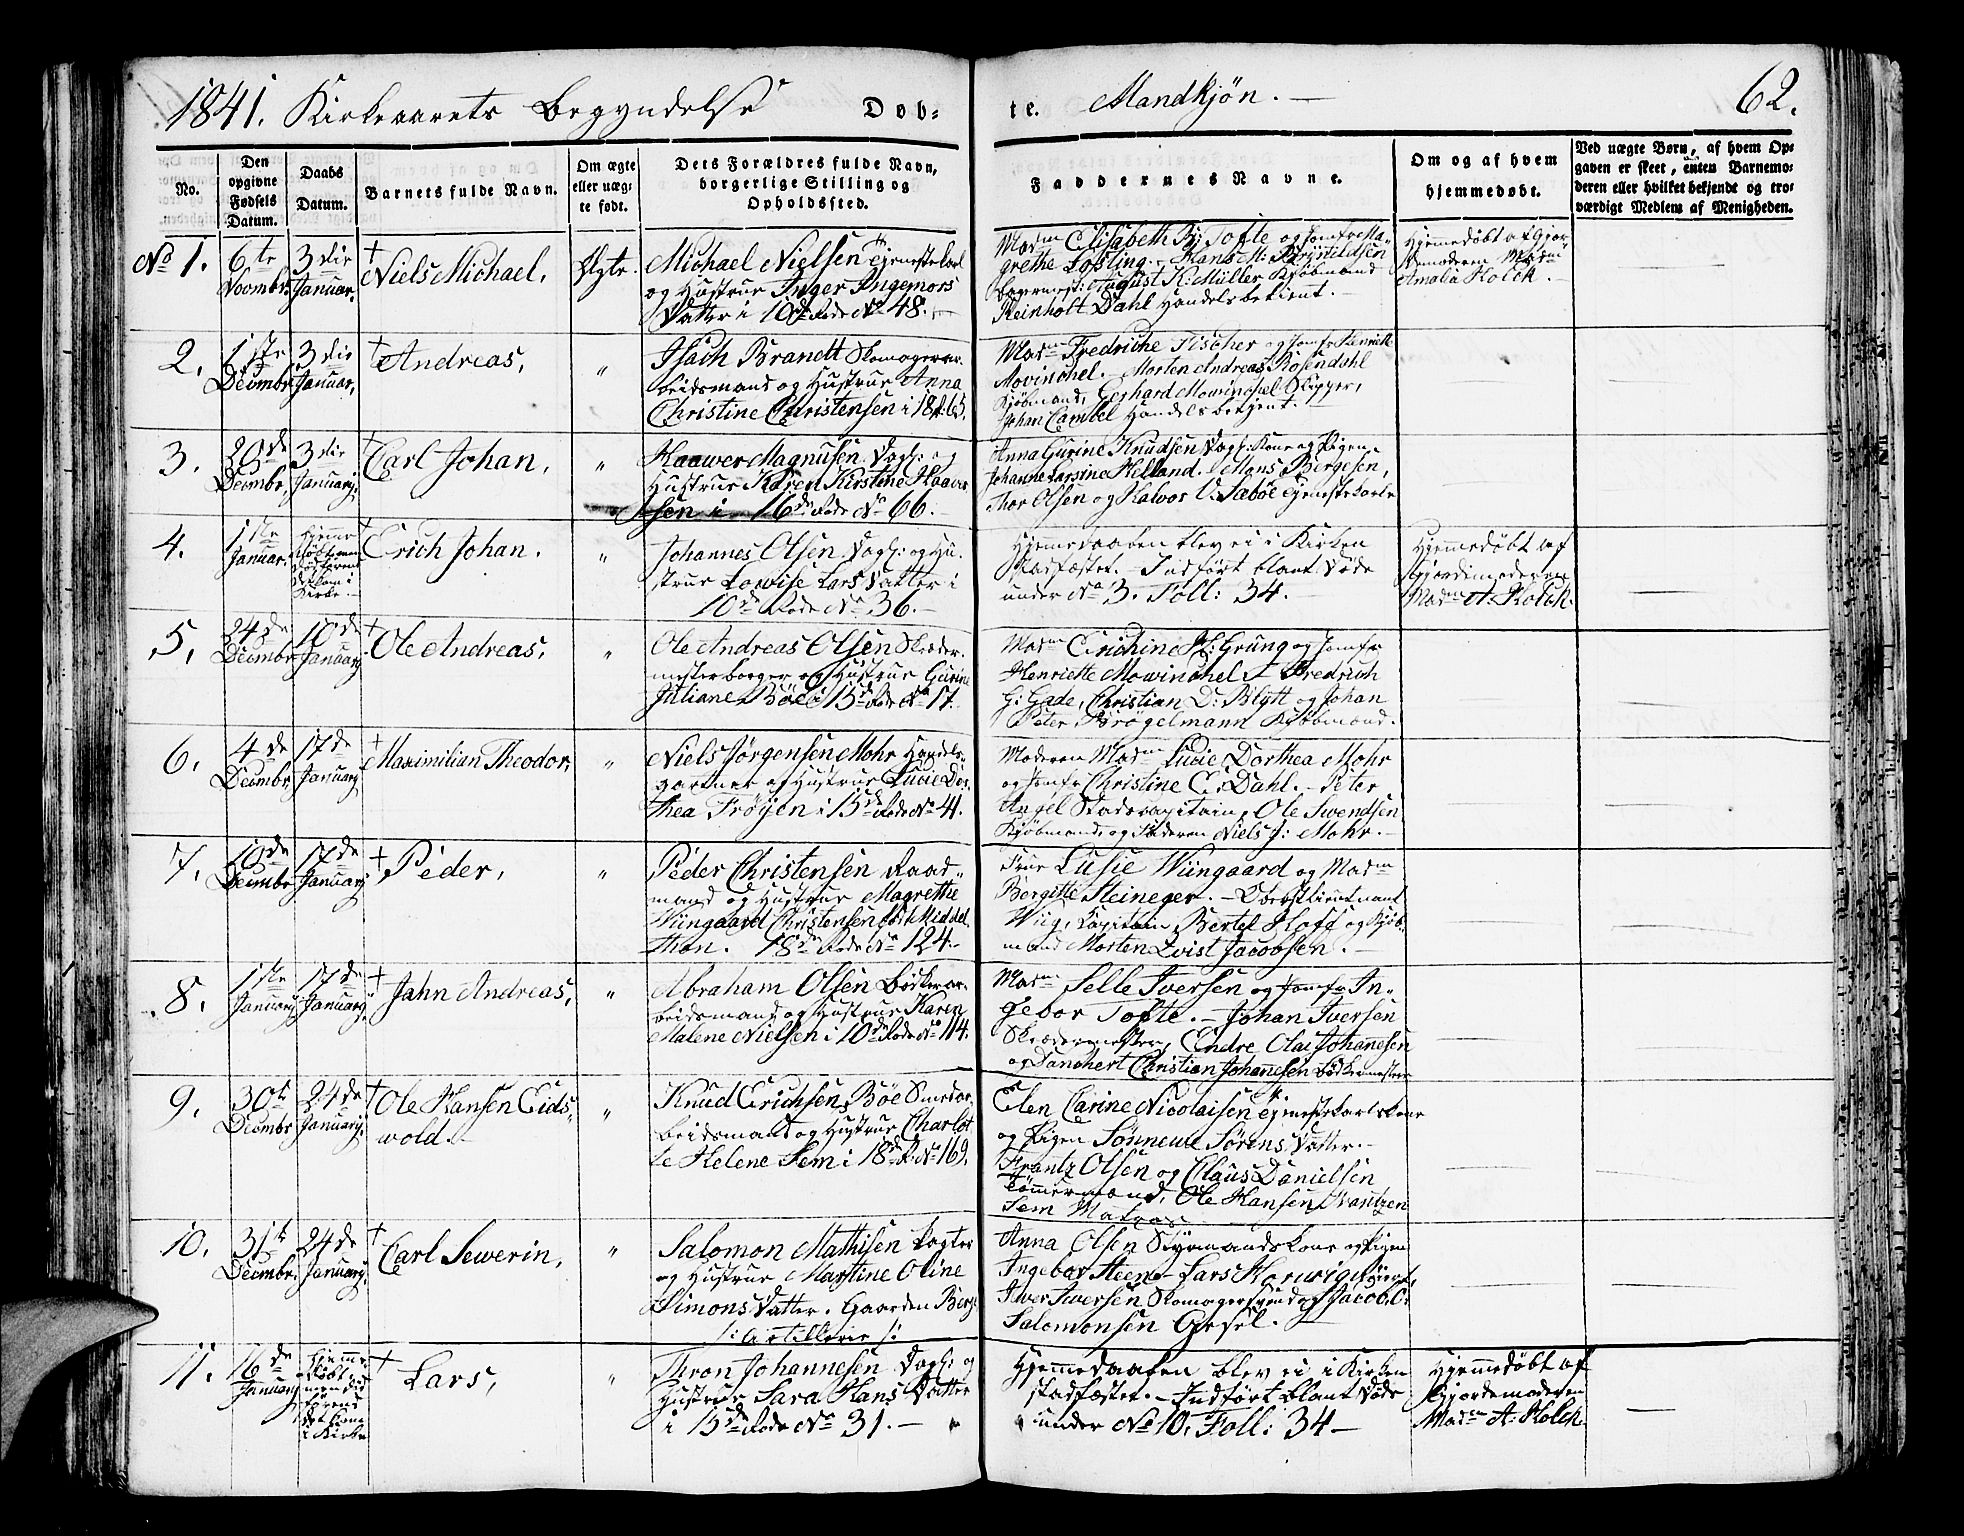 1841. Kirkeaarets Begyndelse
Døb-
te.
Mandkjøn. —
62.
No.
Den opgivne Fødsels Datum.
Daabs Datum.
Barnets fulde Navn.
Om ægte eller uægte født.
Dets Forældres fulde Navn, borgerlige Stilling og Opholdssted.
Faddernes Navne.
Om og af hvem hjemmedøbt.
Ved uægte Børn, af hvem Opgaven er skeet, enten Barnemoderen eller hvilket bekjendt og troværdigt Medlem af Menigheden.
No 1.
6te Novembr.
3die Januar.
† Niels Michael,
Ægte.
Michael Nielsen Tjenestekarl
og Hustrue Inger Ingemors
Datter i 10de Rode No 48. —
Madm Elisabeth B: Tofte og Jomfr Ma-
grethe Losting. — Hans M: Brynildsen
August K: Müller Kjøbmænd
Reinholt Dahl Handelsbetient. —
Hjemedøbt af Gjor-
demoderen Madm
Amalia Holck. —
2.
1ste Decembr.
3die Januar.
† Andreas,
"
Isach Brandt Skomagerar-
beidsmand og Hustrue Anna
Christine Christensen i 18 R. 65.
Madm Fredriche Fischer og Jomfr Henrik
Movinchel. — Morten Andreas Rosendahl
Kjøbmand, Gerhard Mowinchel Skipper,
Johan Cambel Handelsbetjent. —
3.
20de Decembr.
3die January.
† Carl Johan,
"
Haawer Magnusen Dagl: og
Hustrue Karen Kirstine Haaver
Isen i 16de Rode No 66. —
Anna Gurine Knudsen Dagl: Kone og Pigen
Johanne Larsine Helland. Mons Bergesen,
Thor Olsen og Halvor V. Sæbøe Tjenestekarle
4.
1ste Januar.
† Erich Johan.
"
Johannes Olsen, Dagl: og Hu-
strue Lowise Lars Datter i
10de Rode No 36. —
Hjemedaaben blev ei i Kirken
Stadfæstet. — Indført blant Døde
under No 3. Foll: 34. —
Hjemmedøbt af
Gjordemoderen
Madm A. Holck.
5.
24de Decembr.
10de January.
† Ole Andreas,
"
Ole Andreas Olsen Skræder-
mesterborger og Hustrue Gurine
Juliane Bøe i 15de Rode No 17.
Madm Erichine H: Grung og Jomfr
Henriette Mowinchel. — Fredrich
G: Gade, Christian D: Blytt og Johan
Peter Brøgelmann Kjøbmænd. —
6.
4de Decembr.
17de January.
† Maximilian Theodor,
"
Niels Jørgensen Mohr Handels-
gartner og Hustrue Lucie Dor-
thea Frøyen i 15de Rode No 41.
Moderen Madm Lucie Dorthea Mohr
og Jomfr Christine C: Dahl. — Peter
Angel Stadscapitain, Ole Swendsen
Kjøbmand, og Faderen Niels J: Mohr. —
7.
10de Decembr.
17de January.
† Peder,
"
Peder Christensen Raad-
mand og Hustrue Magrethe
Wiingaard Christensen født Middel
thon. 18de Rode No 124. —
Frue Lusie Wiingaard og Madm
Bergitte Steineger. — Oberstlieutnant
Wiig, Capitain Bertel Hoff og Kjøb-
mand Morten Qvist Jacobsen. —
8.
1ste January.
17de January.
† Jahn Andreas,
"
Abraham Olsen Bødkerar-
beidsmand og Hustrue Karen
Malene Nielsen i 10de Rode No 114.
Madm Selle Iversen og Jomfr In-
gebor Tofte. — Johan Iversen
Skrædermester, Endre Olai Johanesen
og Danchert Christian Johanesen Bødkermestere
9.
30te Decembr.
24de January.
† Ole Hansen Eids-
wold. —
"
Knud Erichsen Bøe Smedar-
beidsmand og Hustrue Charlot
te Helene Sem i 18de R. No 169.
Elen Carine Nicolaisen Tjenestekarlskone
og Pigen Sønnewe Sørens Datter. —
Frantz Olsen og Claus Danielsen
Tømmermænd, Ole Hansen Swantzen
Sem Matros
10.
31te Decembr.
24de January.
† Carl Sewerin,
"
Salomon Mathisen Fogter
og Hustrue Martine Oline
Simons Datter. Gaarden Berg
/: Artillerie :/
Anna Olsen Styrmandskone og Pigen
Ingebor Steen — Lars Horwigen
Iver Iwersen Skomagersvend og Jacob C:
Salomonsen Gesel. —
11.
16de January.
† Lars,
"
Thron Johannesen Dagl: og
Hustrue Sara Hans Datter
i 15de Rode No 31. — "
Hjemedaaben blev ei i Kirken
stadfæstet. — Indført blant Døde
under No 10, Foll: 34 —
Hjemmedøbt af
Gjordemoderen
Madm A: Holck